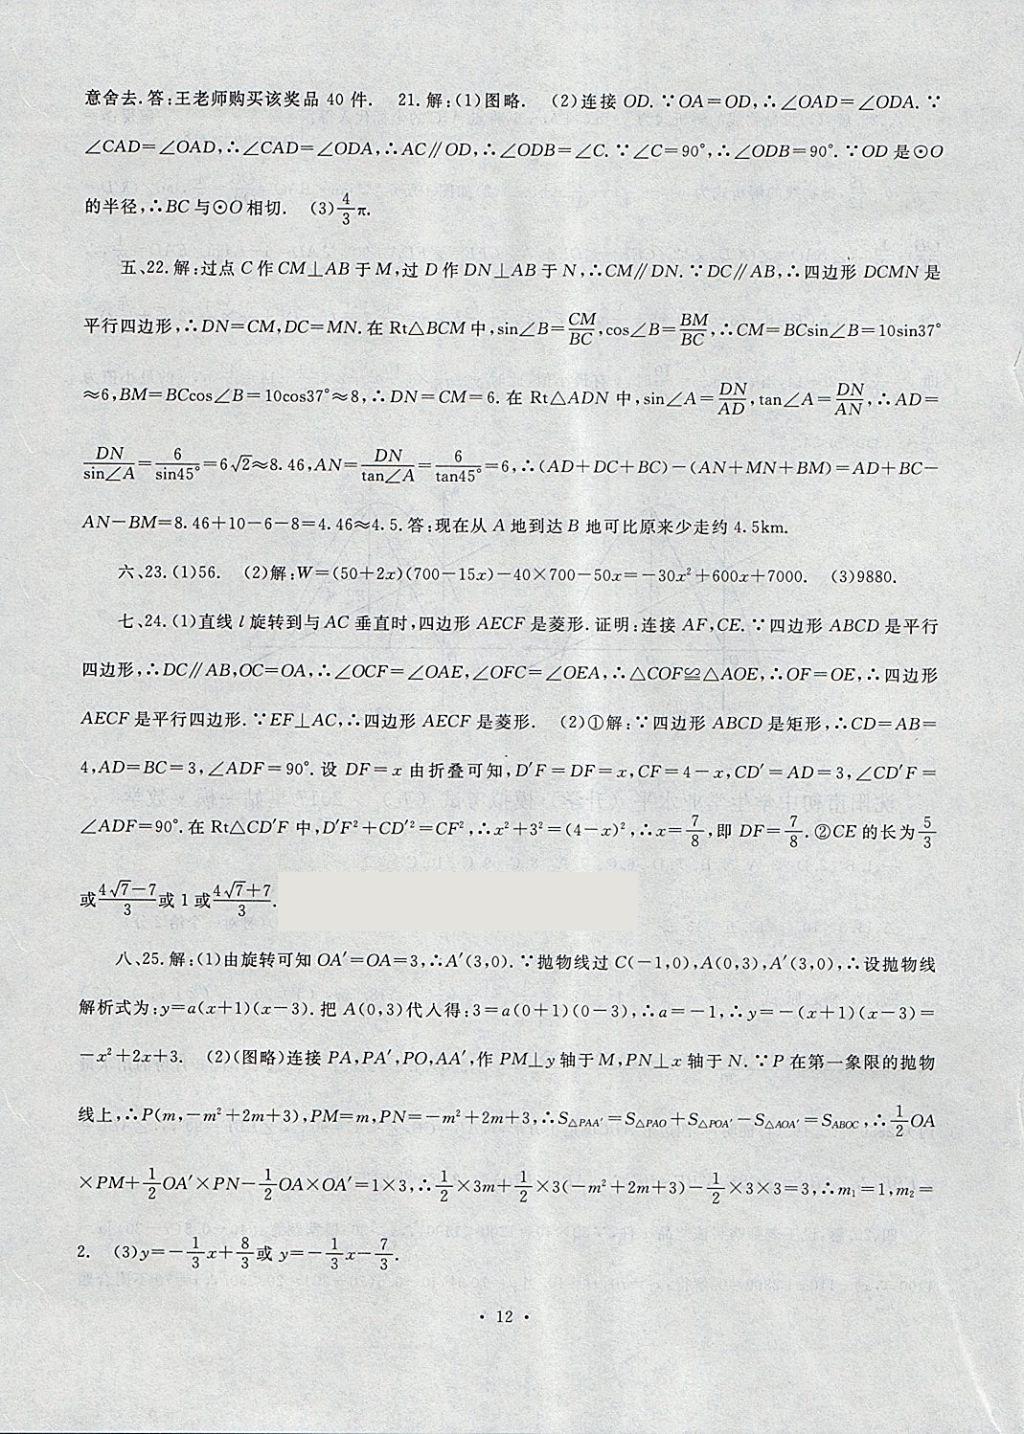 意舍去.答:王老师购买该奖品 40 件. 21.解:(1)图略. (2)连接 OD.∵OA=OD,∴∠OAD=∠ODA.∵
∠CAD=∠OAD,∴∠CAD=∠ODA,∴AC∥OD,∴∠ODB=∠C.∵∠C=90°,∴∠ODB=90°.∵OD 是⊙O
的半径,∴BC 与⊙O 相切. (3)4/3π.
五、22.解:过点 C 作 CM⊥AB 于 M,过 D 作 DN⊥AB 于 N,∴CM∥DN.∵DC∥AB,∴四边形 DCMN 是
平行四边形,∴DN=CM,DC=MN.在 Rt△BCM 中,sin∠B=CM/BC,cos∠B=BM/BC,∴CM=BCsin∠B=10sin37°
≈6,BM=BCcos∠B=10cos37°≈8,∴DN=CM=6.在 Rt△ADN 中,sin∠A=DN/AD,tan∠A=DN/AN,∴AD=
DN/sin∠A=6/sin45°=6√2≈8.46,AN=DN/tan∠A=6/tan45°=6,∴(AD+DC+BC)-(AN+MN+BM)=AD+BC-
AN-BM=8.46+10-6-8=4.46≈4.5.答:现在从 A 地到达 B 地可比原来少走约 4.5km.
六、23.(1)56. (2)解:W=(50+2x)(700-15x)-40×700-50x=-30x²+600x+7000. (3)9880.
七、24.(1)直线 l 旋转到与 AC 垂直时,四边形 AECF 是菱形.证明:连接 AF,CE.∵四边形 ABCD 是平行
四边形,∴DC∥AB,OC=OA,∴∠OCF=∠OAE,∠OFC=∠OEA,∴△COF≌△AOE,∴OF=OE,∴四边形
AECF 是平行四边形.∵EF⊥AC,∴四边形 AECF 是菱形. (2)①解:∵四边形 ABCD 是矩形,∴CD=AB=
4,AD=BC=3,∠ADF=90°.设 DF=x 由折叠可知,D′F=DF=x,CF=4-x,CD′=AD=3,∠CD′F=
∠ADF=90°.在 Rt△CD′F 中,D′F²+CD′²=CF²,∴x²+3²=(4-x)²,∴x=7/8,即 DF=7/8.②CE 的长为5/3
或(4√7-7)/3或 1 或(4√7+7)/3.
八、25.解:(1)由旋转可知 OA′=OA=3,∴A′(3,0).∵抛物线过 C(-1,0),A(0,3),A′(3,0),∴设抛物线
解析式为:y=a(x+1)(x-3).把 A(0,3)代人得:3=a(0+1)(0-3),∴a=-1,∴y=-(x+1)(x-3)=
-x²+2x+3. (2)(图略)连接 PA,PA′,PO,AA′,作 PM⊥y 轴于 M,PN⊥x 轴于 N.∵P 在第一象限的抛物
线上,∴P(m,-m²+2m+3),PM=m,PN=-m²+2m+3,∴S△PAA′=S△PAO+S△POA′-S△AOA′=SABOC,∴1/2OA
×PM+1/2OA′×PN-1/2OA×OA′=1×3,∴1/2×3m+1/2×3(-m²+2m+3)-1/2×3×3=3,∴m₁=1,m₂=
2. (3)y=-1/3x+8/3或 y=-1/3x-7/3.
· 12 ·